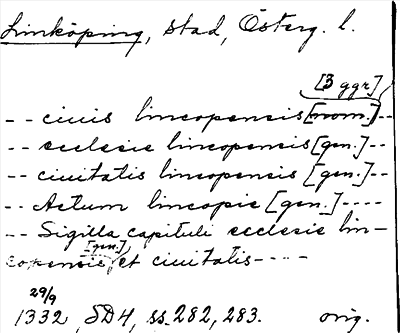 Linköping, stad, Österg. l.
[3 ggr]
-- ciuis lincopensis [nom.] --
-- ecclesie lincopensis [gen.] --
-- ciuitatis lincopensis [gen.] --
-- Actum lincopie [gen.] ----
-- Sigilla capituli ecclesie lin-
[gen.]
copensis et ciuitatis ----
29/9
1332, SD4, ss. 282, 283. orig.